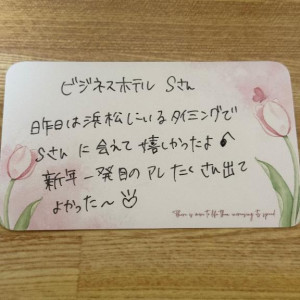 ビジネスホテル Sさん
昨日は浜松にいるタイミングで
Sさんに会えて嬉しかったよ
新年一発目のアレたくさん出て
よかった〜
There is more to life than increasing its speed